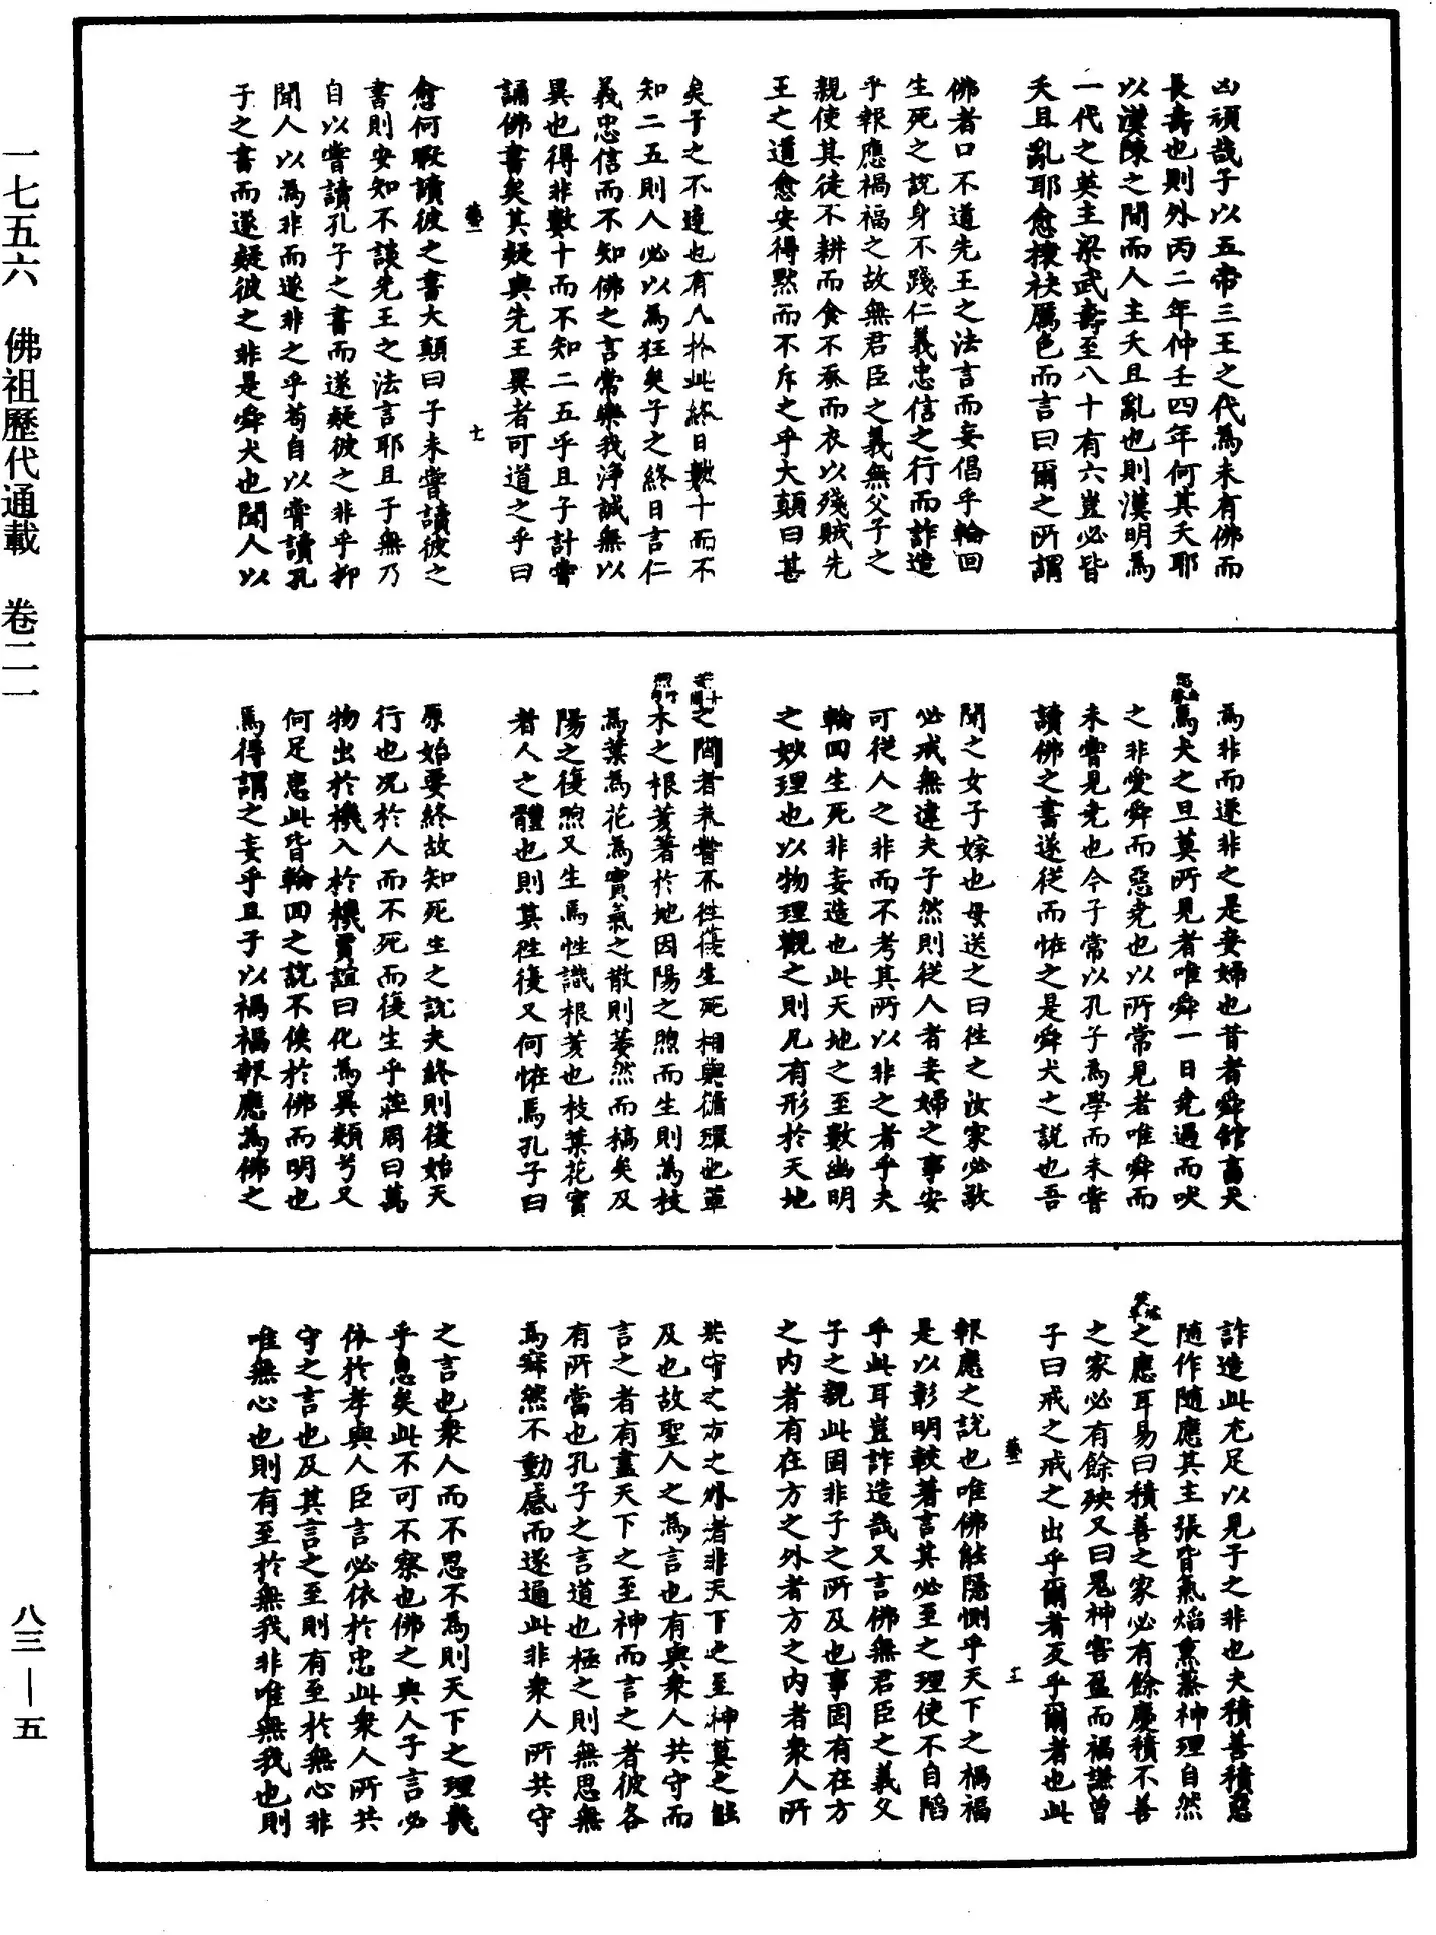 一七五六　佛祖歷代通載　卷二一
凶頑哉子以五帝三王之代爲未有佛而
長壽也則外丙二年仲壬四年何其夭耶
以漢陳之間而人主夭且亂也則漢明爲
一代之英主梁武壽至八十有六豈必皆
夭且亂耶愈攘袂厲色而言曰爾之所謂
佛者口不道先王之法言而妄倡乎輪回
生死之說身不踐仁義忠信之行而詐造
乎報應禍福之故無君臣之義無父子之
親使其徒不耕而食不蠶而衣以殘賊先
王之道愈安得默而不斥之乎大顛曰甚
矣子之不達也有人於此終日數十而不
知二五則人必以為狂矣子之終日言仁
義忠信而不知佛之言常樂我淨誠無以
異也得非數十而不知二五乎且子計嘗
誦佛書矣其疑與先王異者可道之乎曰
藝一　七
愈何暇讀彼之書大顛曰子未嘗讀彼之
書則安知不談先王之法言耶且子無乃
自以嘗讀孔子之書而遂疑彼之非乎抑
聞人以為非而遂非之乎苟自以嘗讀孔
子之書而遂疑彼之非是舜犬也聞人以
為非而遂非之是妾婦也昔者舜館畜犬
焉犬之旦莫所見者唯舜一日堯過而吠
之非愛舜而惡堯也以所常見者唯舜而
未嘗見堯也今子常以孔子為學而未嘗
讀佛之書遂從而怪之是舜犬之說也吾
聞之女子嫁也母送之曰往之汝家必敬
必戒無違夫子然則從人者妾婦之事安
可從人之非而不考其所以非之者乎夫
輪回生死非妄造也此天地之至數幽明
之妙理也以物理觀之則凡有形於天地
之間者未嘗不往復生死相與循環也草
木之根荄著於地因陽之煦而生則為枝
為葉為花為實氣之散則萎然而槁矣及
陽之復煦又生焉性識根荄也枝葉花實
者人之體也則其往復又何怪焉孔子曰
原始要終故知死生之說夫終則復始天
行也況於人而不死而復生乎莊周曰萬
物出於機入於機賈誼曰化為異類兮又
何足患此皆輪回之說不俟於佛而明也
焉得謂之妄乎且子以禍福報應為佛之
詐造此尤足以見子之非也夫積善積惡
隨作隨應其主張皆氣焰熏蒸神理自然
之應耳易曰積善之家必有餘慶積不善
之家必有餘殃又曰鬼神害盈而福謙曾
子曰戒之戒之出乎爾者反乎爾者也此
藝一
報應之說也唯佛能隱惻乎天下之禍福
是以彰明較著言其必至之理使不自陷
乎此耳豈詐造哉又言佛無君臣之義父
子之親此固非子之所及也事固有在方
之內者有在方之外者方之內者衆人所
共守之方之外者非天下之至神莫之能
及也故聖人之為言也有與衆人共守而
言之者有盡天下之至神而言之者彼各
有所當也孔子之言道也極之則無思無
為寂然不動感而遂通此非衆人所共守
之言也衆人而不思不為則天下之理幾
乎息矣此不可不察也佛之與人子言必
依於孝與人臣言必依於忠此衆人所共
守之言也及其言之至則有至於無心非
唯無心也則有至於無我非唯無我也則
八三—五